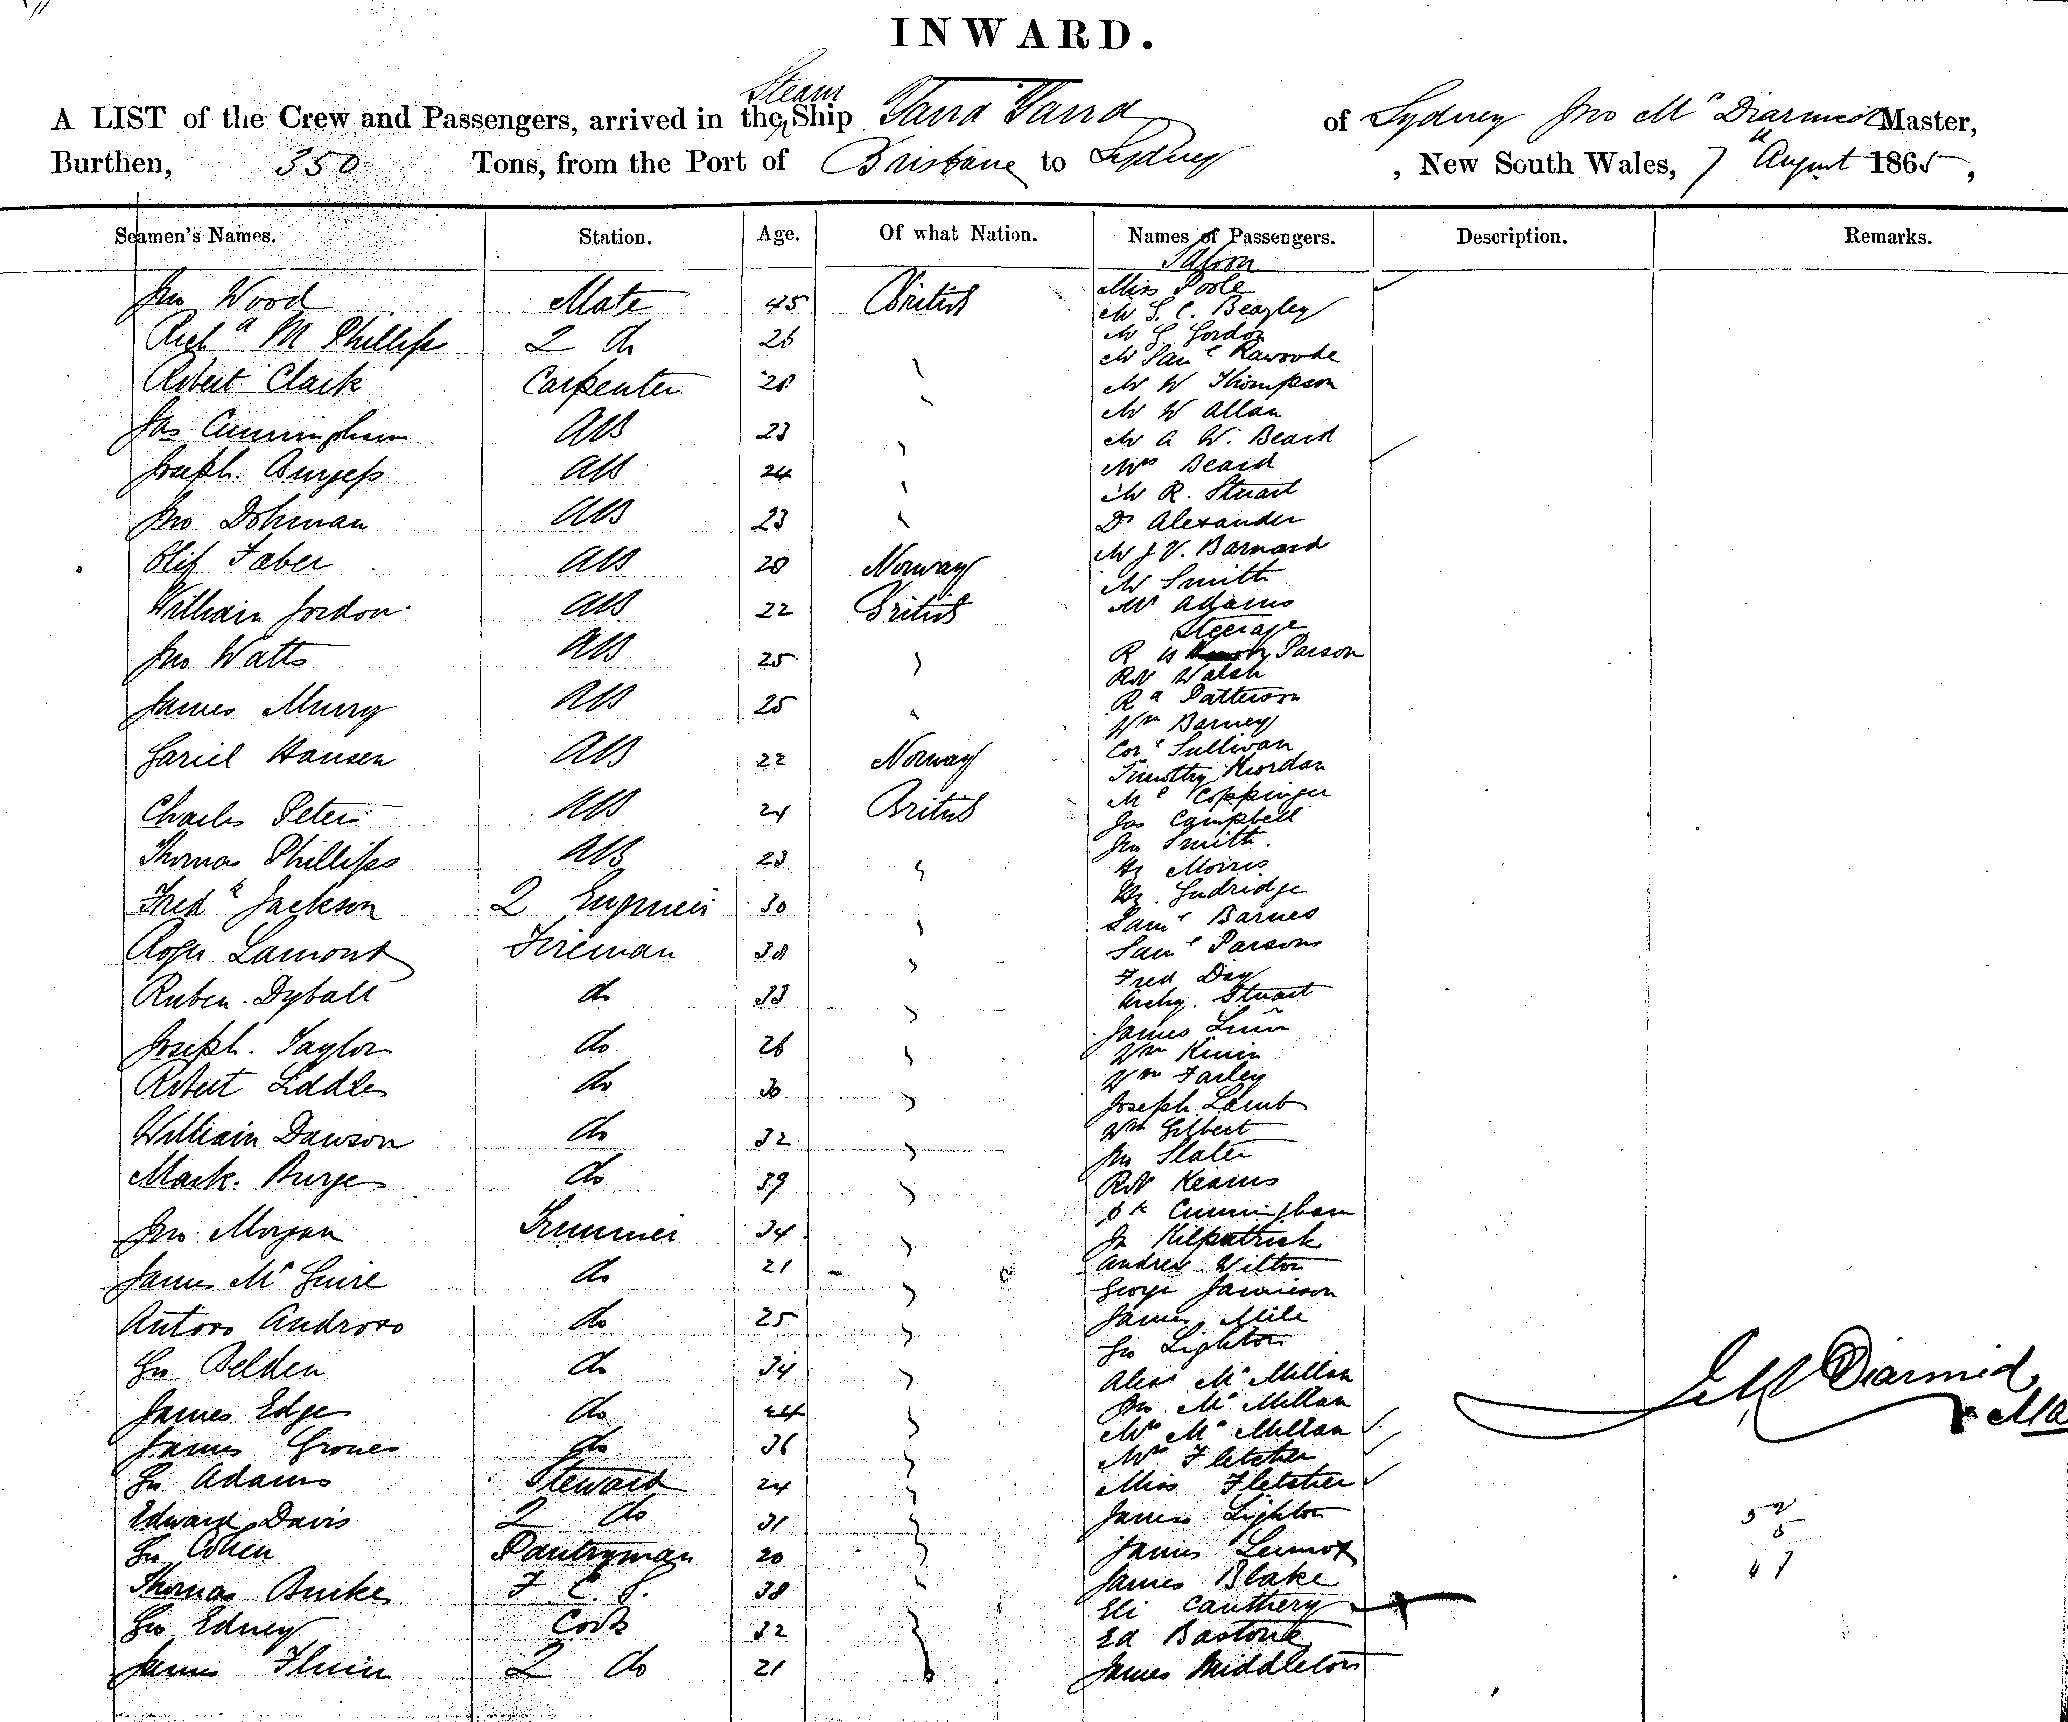 INWARD.
Steam
A LIST of the Crew and Passengers, arrived in the Ship Yarra Yarra of Sydney Jno Mc Diarmid Master,
Burthen, 350 Tons, from the Port of Brisbane to Sydney, New South Wales, 7 August 1865,
Seamen's Names. Station. Age. Of what Nation. Names of Passengers. Description. Remarks.
Jno Wood Mate 45 British
Richd M Phillips 2 do 26
Robert Clark Carpenter 28
Jas Cunningham AB 23
Joseph Burgess AB 24
Jno Dohman AB 23
Olif Faber AB 28 Norway
William Jordon AB 22 British
Jno Watts AB 25
James Murry AB 25
Hansen AB 22 Norway
Charles Peters AB 24 British
Thomas Phillips AB 23
Fredk Jackson 2 Engineer 30
Roger Lamont Fireman 38
Ruben Dyball do 33
Joseph Taylor do 26
Robert Liddle do 30
William Dawson do 32
Mark Burge do 39
Jno Morgan Trimmer 34
James Mc Guire do 21
Antoro Androro do 25
Jno Belden do 34
James Edge do 24
James Groves do 36
Jno Adams Steward 24
Edward Davis 2 do 31
Jno Cohen Pantryman 20
Thomas Burke F C S. 38
Jno Edney Cook 32
James Flinn 2 do 21
Saloon
Miss Poole
Mr S. C. Beazley
Mr G Gordon
Mr Saml
Mr W Thompson
Mr W Allan
Mr A W. Beard
Mrs Beard
Mr R. Stuart
Dr Alexander
Mr J V. Barnard
Mr Smith
Mr Adams
Steerage
R W Parson
Robt Walsh
Rd Patterson
Wm Barney
Cors Sullivan
Timothy Riordan
Ml Coppinger
Jas Campbell
Jno Smith
Hy Morris
Hy. Gudridge
Saml Barnes
Saml Parsons
Fred Day
Archy. Stuart
James
Wm
Wm Farley
Joseph Lamb
Wm Gilbert
Jno Slater
Robt Kearns
Pk Cunningham
Jn Kilpatrick
Andrew Wilton
George Jamieson
James Mile
Jno Lighton
Alexr Mc Millan
Jno Mc Millan
Mrs Mc Millan
Mrs Fletcher
Miss Fletcher
James Lighton
James Lennox
James Blake
Eli Cauthery
Ed Bastone
James Middleton
J Mc Diarmid
Ma
52
5
47